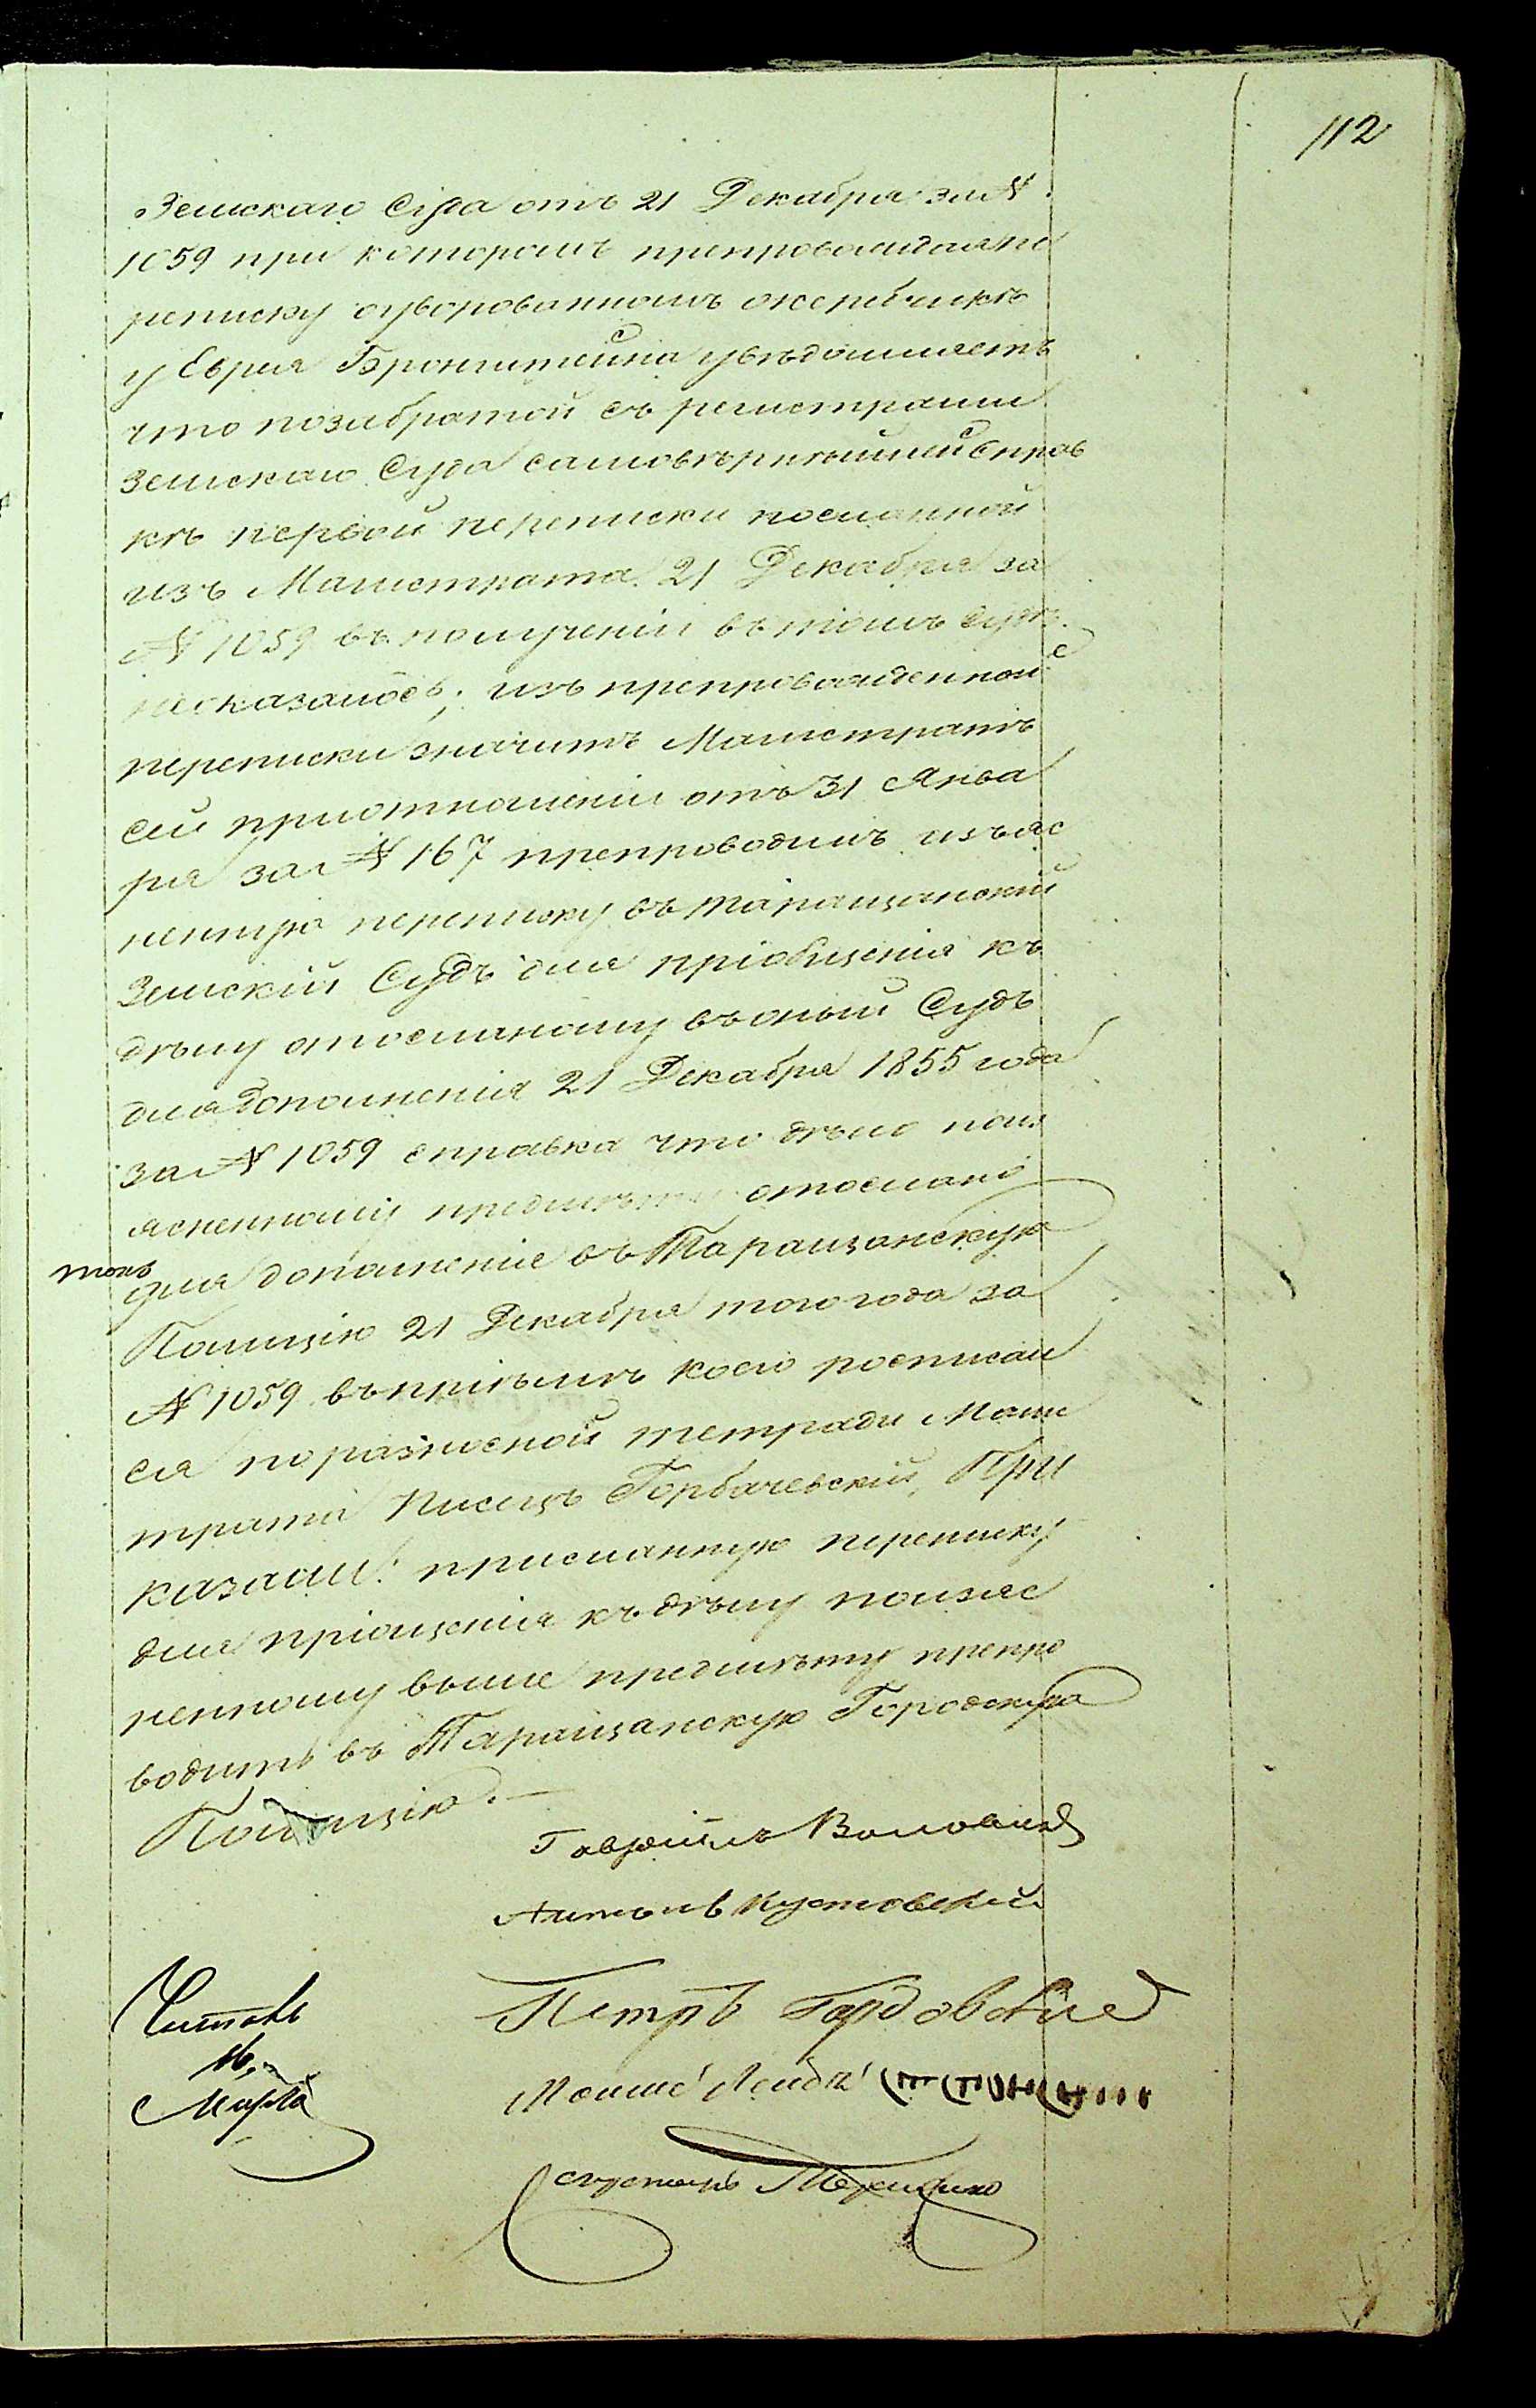 112
Земскаго Суда отъ 21 Декабря за №
1059 при которомъ препровождая пе
реписку о уворованномъ жеребчикѣ
у Еврея Бронштейна увѣдомляетъ
что по забратой съ регистрами
Земскаго Суда самовѣрнѣйшей справ
кѣ первой переписки посланной
изъ Магистрата 21 Декабря за
№ 1059 въ полученіи въ томъ Судѣ
неоказалось; изъ препровожденной
переписки значитъ Магистратъ
сей при отношеніи отъ 31 Янва
ря за № 167 препроводилъ изъяс
ненную переписку въ Таращанскій
Земскій Судъ для пріобщенія къ
дѣлу отосланому въ оный Судъ
для дополненія 21 Декабря 1855 года
за № 1059 справка что дѣло поиз
ясненному предмѣту отослано
для дополненіе въ Таращанскую
Полицію 21 Декабря того года за
№ 1059 въ пріѣмѣ коего росписал
ся по разносной тетради Маги
трата Писецъ Горбачевскій, При
казали: присланную переписку
для пріощенія къ дѣлу поизяс
ненному выше предмѣту препро
водить въ Таращанскую Городскую
Полицію.—
Гавріилъ
Петръ
Читалъ
16,
Марта